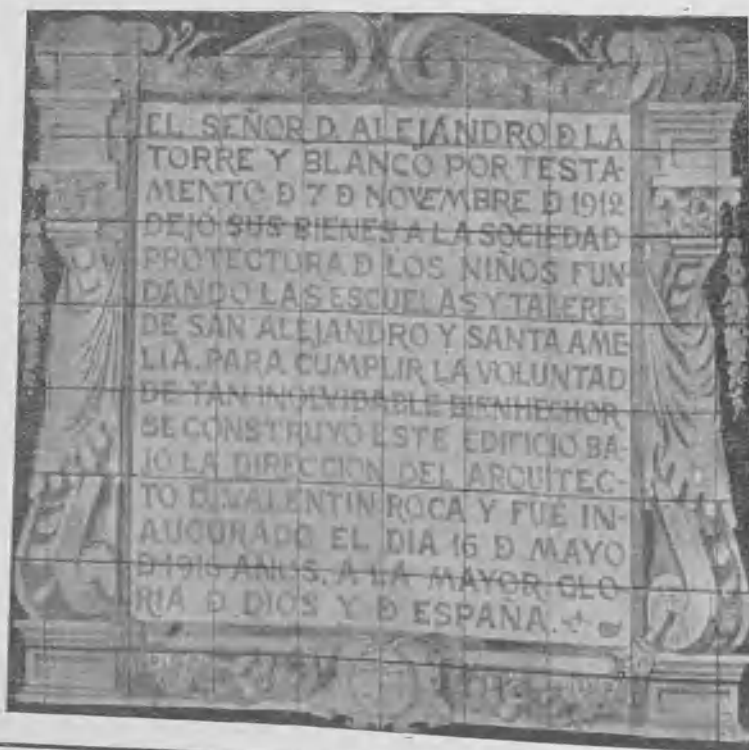 EL SEÑOR D. ALEJANDRO D LA
TORRE Y BLANCO POR TESTA-
MENTO D 7 D NOVEMBRE D 1912
DEJÓ SUS BIENES A LA SOCIEDAD
PROTECTORA D LOS NIÑOS FUN
DANDO LAS ESCUELAS Y TALERES
DE SAN ALEJANDRO Y SANTA AME
LIA. PARA CUMPLIR LA VOLUNTAD
DE TAN INOLVIDABLE BIENHECHOR
SE CONSTRUYÓ ESTE EDIFICIO BA-
JO LA DIRECCION DEL ARQUITEC-
TO D. VALENTIN ROCA Y FUÉ IN-
AUGURADO EL DIA 16 D MAYO
D AÑOS. A LA MAYOR GLO
RIA D DIOS Y D ESPAÑA.